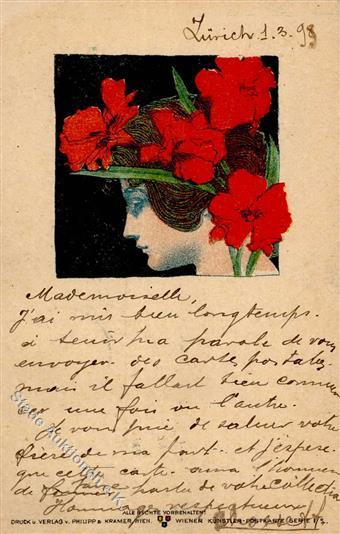 Zürich 1.3.98
Mademoiselle,
J'ai mis bien longtemps
à tenir ma parole de vous
envoyer des carte postales
mais il fallait bien commen
cer une fois ou l'autre.
Je vous prie de saluer votre
frère de ma part et j'espère
que cette carte aura l'honneur
de faire partie de votre collection
Hommages respectueux
ALLE RECHTE VORBEHALTEN!
DRUCK u. VERLAG v. PHILIPP & KRAMER WIEN. WIENER KÜNSTLER-POSTKARTE (SERIE I/